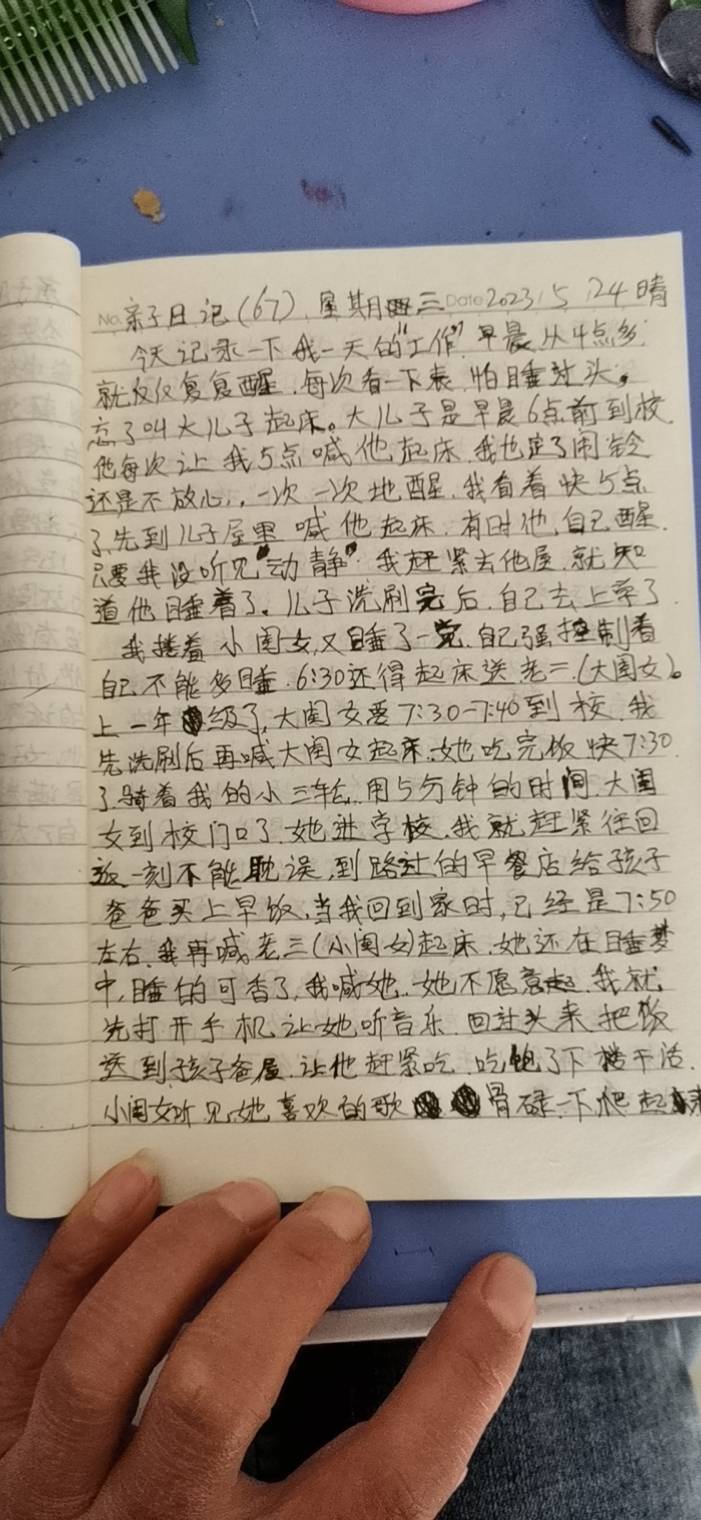 No. 亲子日记(67). 星期三 Date 2023.5.24晴
今天记录一下我一天的"工作",早晨从4点多
就反反复复醒.每次看一下表,怕睡过头。
忘了叫大儿子起床。大儿子是早晨6点前到校.
他每次让我5点喊他起床.我也定了闹铃
还是不放心,.一次一次地醒.我看着快5点
了,先到儿子屋里喊他起床.有时他自己醒.
只要我没听见"动静".我赶紧去他屋.就知
道他睡着了。儿子洗刷完后.自己去上学了.
我搂着小闺女,又睡了一觉.自己强控制着
自己不能多睡.6:30还得起床送老二.(大闺女)。
上一年级了,大闺女要7:30-7:40到校.我
先洗刷后再喊大闺女起床.她吃完饭快7:30.
了.骑着我的小三轮.用5分钟的时间.大闺
女到校门口了.她进学校.我就赶紧往回
返一刻不能耽误.到路过的早餐店给孩子
爸爸买上早饭.当我回到家时,已经是7:50
左右.我再喊老三(小闺女)起床.她还在睡梦
中,睡的可香了,我喊她.她不愿意起.我就
先打开手机让她听音乐.回过头来把饭
送到孩子爸屋.让他赶紧吃.吃饱了下楼干活.
小闺女听见她喜欢的歌骨碌一下爬起来